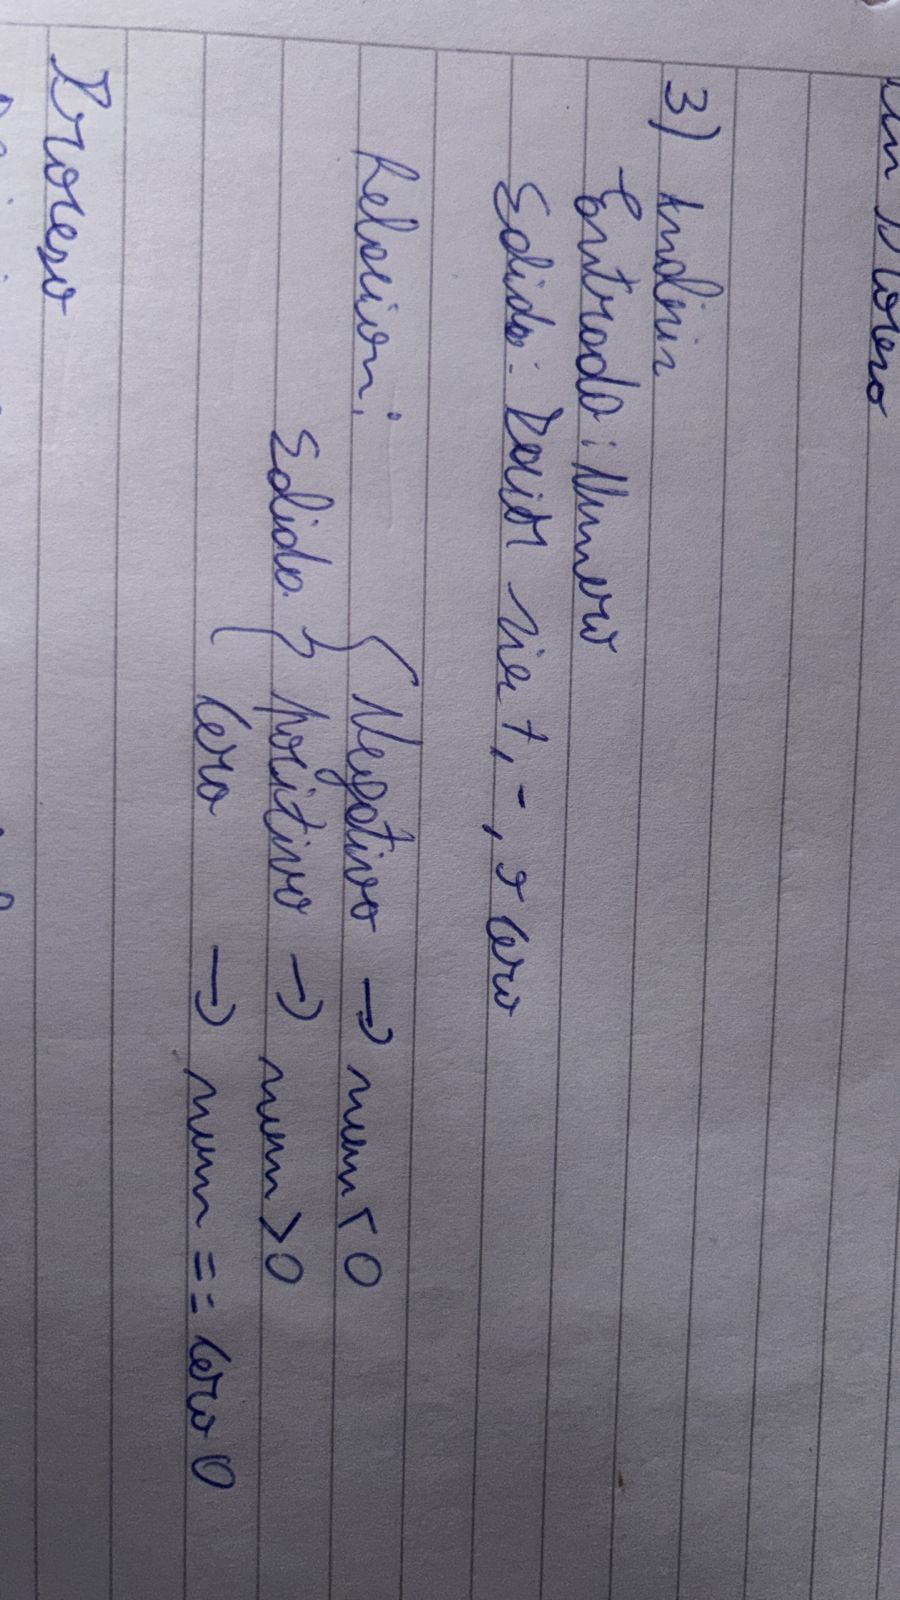 Fin Proceso
3) Analisis
Entrada: Numero
Salida: Decir si es +, -, o cero
Relacion:
Negativo → num < 0
Salida { positivo → num > 0
Cero → num == cero 0
Proceso